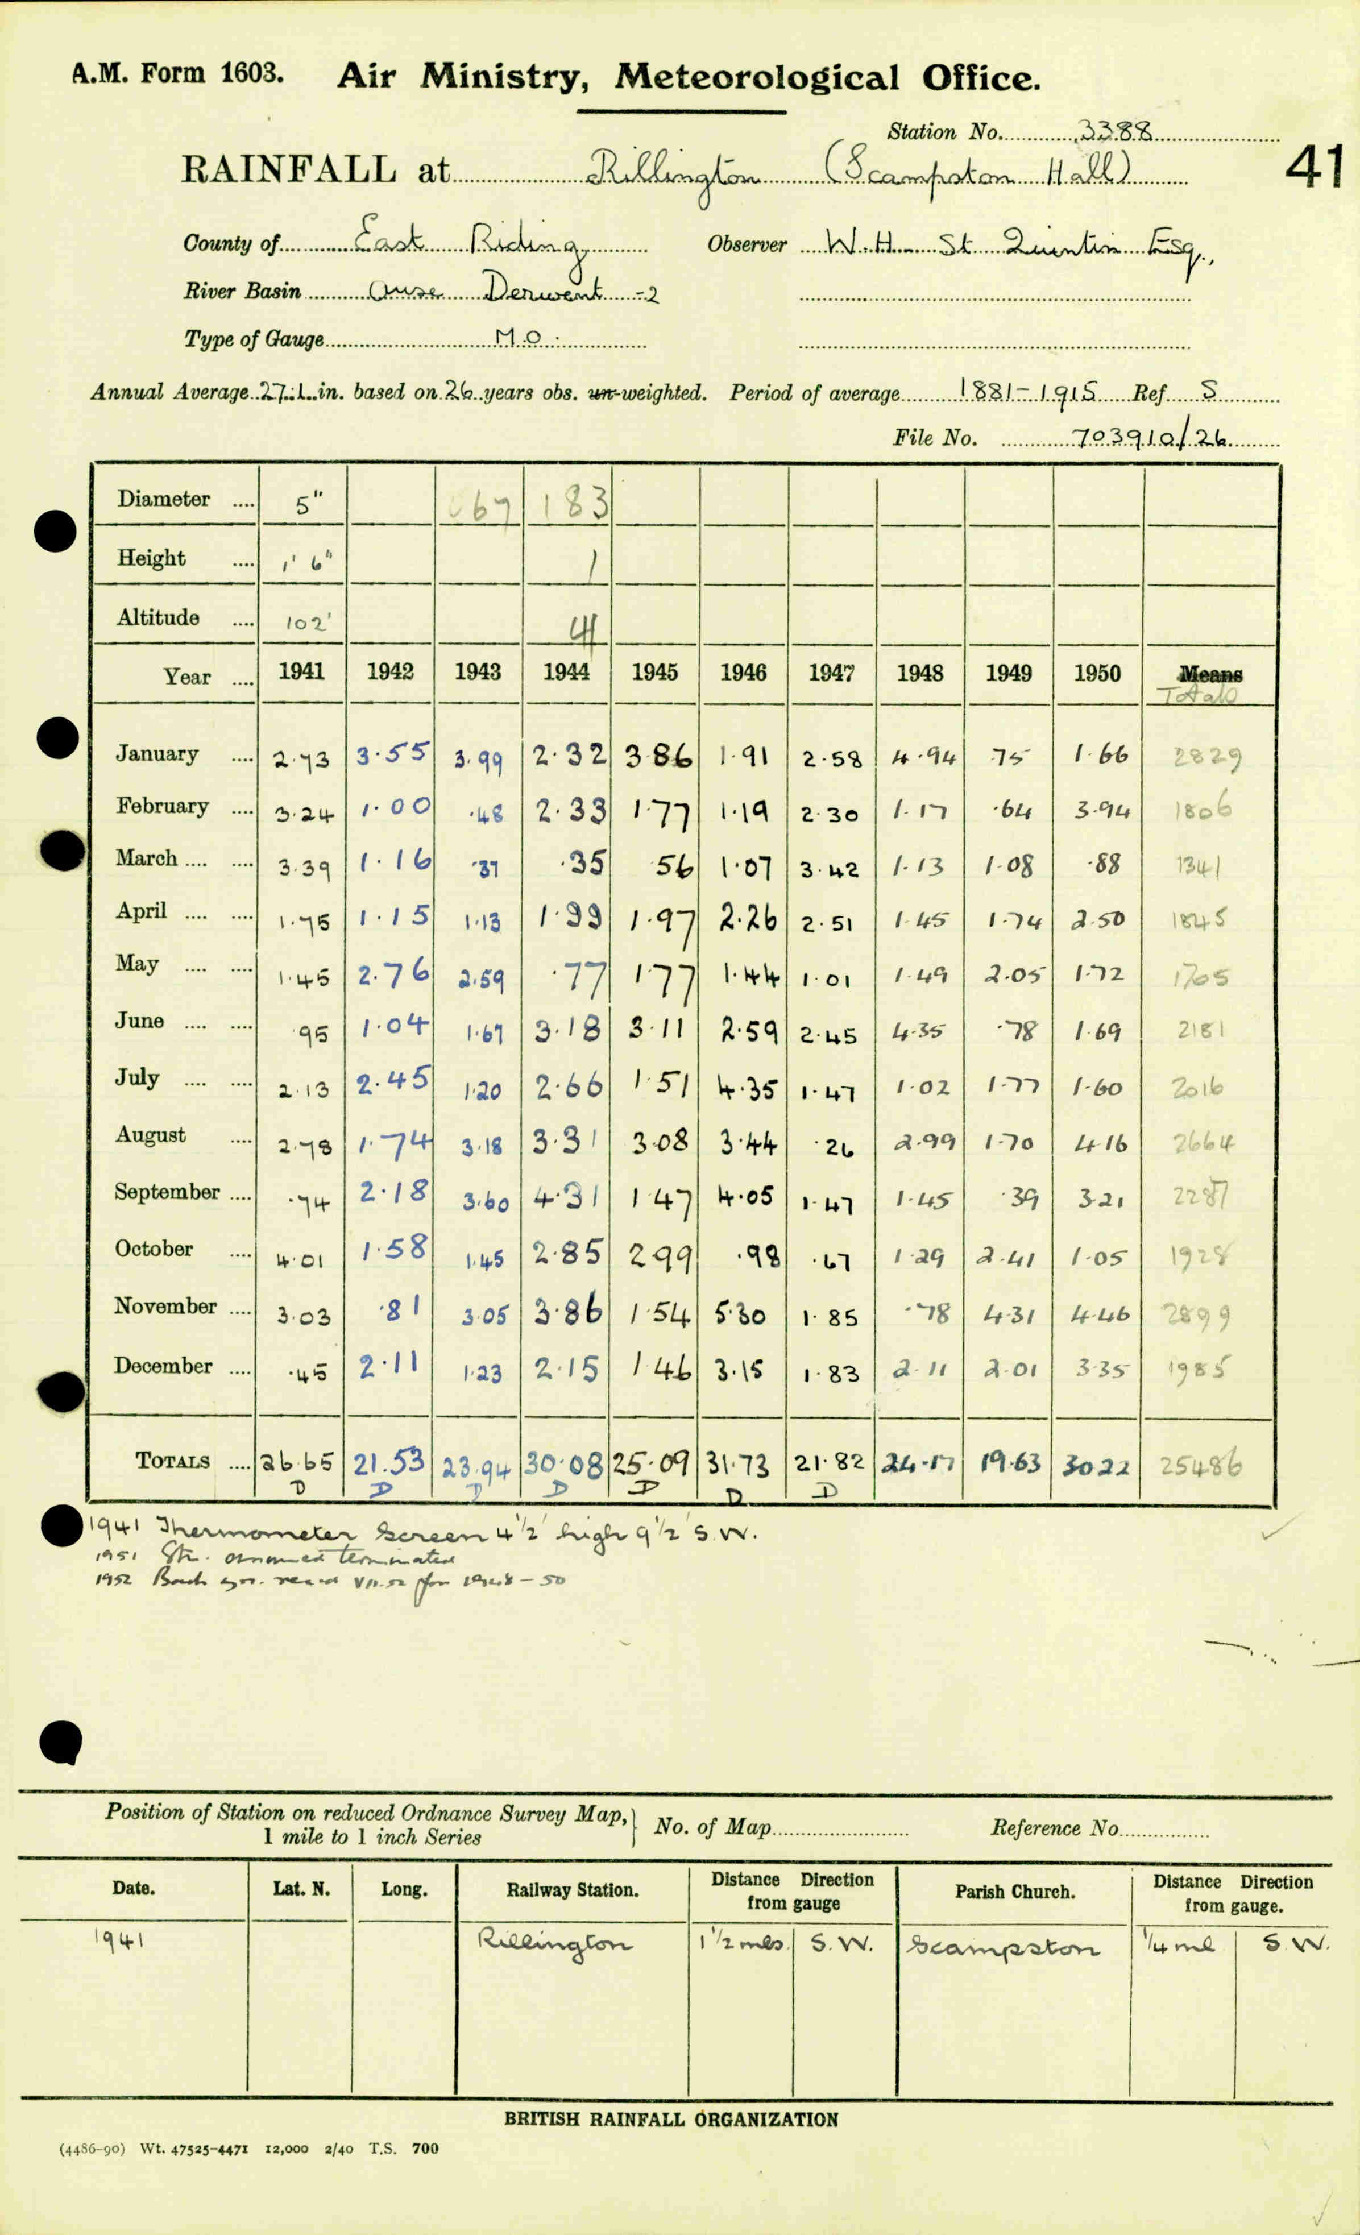 A.M. Form 1603. Air Ministry, Meteorological Office.
Station No. 3388
41
RAINFALL at Rillington (Scampston Hall)
County of East Riding Observer W.H. St Quintin Esq.,
River Basin Ouse Derwent -2
Type of Gauge M.O.
Annual Average 27.1 in. based on 26 years obs. un-weighted. Period of average 1881-1915 Ref S
File No. 703910/26
Diameter .... 5" 67 183
Height .... 1' 6" 1
Altitude .... 102' 41
Year .... 1941 1942 1943 1944 1945 1946 1947 1948 1949 1950 Means
Totals
January .... 2.73 3.55 3.99 2.32 3.86 1.91 2.58 4.94 .75 1.66 2829
February .... 3.24 1.00 .48 2.33 1.77 1.19 2.30 1.17 .64 3.94 1806
March .... .... 3.39 1.16 .37 .35 .56 1.07 3.42 1.13 1.08 .88 1341
April .... .... 1.75 1.15 1.13 1.99 1.97 2.26 2.51 1.45 1.74 2.50 1845
May .... .... 1.45 2.76 2.59 .77 1.77 1.44 1.01 1.49 2.05 1.72 1705
June .... .... .95 1.04 1.67 3.18 3.11 2.59 2.45 4.35 .78 1.69 2181
July .... .... 2.13 2.45 1.20 2.66 1.51 4.35 1.47 1.02 1.77 1.60 2016
August .... 2.78 1.74 3.18 3.31 3.08 3.44 .26 2.99 1.70 4.16 2664
September .... .74 2.18 3.60 4.31 1.47 4.05 1.47 1.45 .39 3.21 2287
October .... 4.01 1.58 1.45 2.85 2.99 .98 .67 1.29 2.41 1.05 1928
November .... 3.03 .81 3.05 3.86 1.54 5.30 1.85 .78 4.31 4.46 2899
December .... .45 2.11 1.23 2.15 1.46 3.15 1.83 2.11 2.01 3.35 1985
TOTALS .... 26.65 21.53 23.94 30.08 25.09 31.73 21.82 24.17 19.63 30.22 25486
D D D D D D D
1941 Thermometer Screen 4½' high 9½' S.W.
1951 Stn. assumed terminated
1952 Back yrs. rec'd VII.52 for 1948-50
Position of Station on reduced Ordnance Survey Map, No. of Map Reference No.
1 mile to 1 inch Series
Date. Lat. N. Long. Railway Station. Distance from gauge Direction Parish Church. Distance from gauge. Direction
1941 Rillington 1½ mls. S.W. Scampston ¼ ml S.W.
BRITISH RAINFALL ORGANIZATION
(4486-90) Wt. 47525-4471 12,000 2/40 T.S. 700